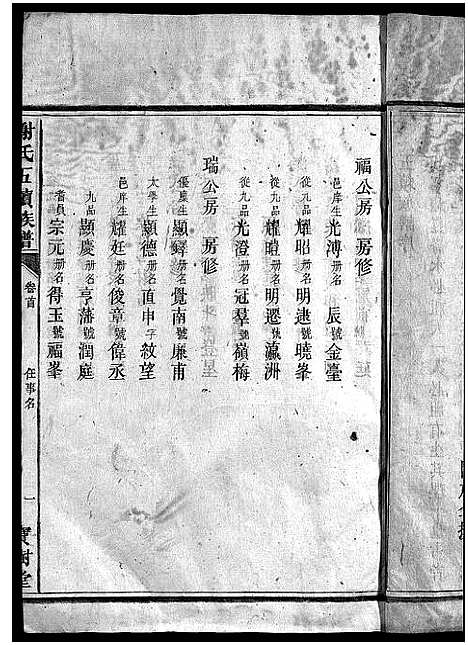 福公房 房修
邑庠生光溥冊名辰號金臺
從九品耀昭冊名明逮號曉峯
從九品耀暟冊名明遷號瀛洲
從九品光澄冊名冠羣號嶺梅
瑞公房 房修
優廩生顯鐸冊名覺南號廉甫
太學生顯德冊名直申字紋望
邑庠生耀廷冊名俊章號偉丞
九品顯慶冊名亨藩號潤庭
耆員宗元冊名得玉號福峯
謝氏五修族譜
卷首
任事名
一
寶樹堂